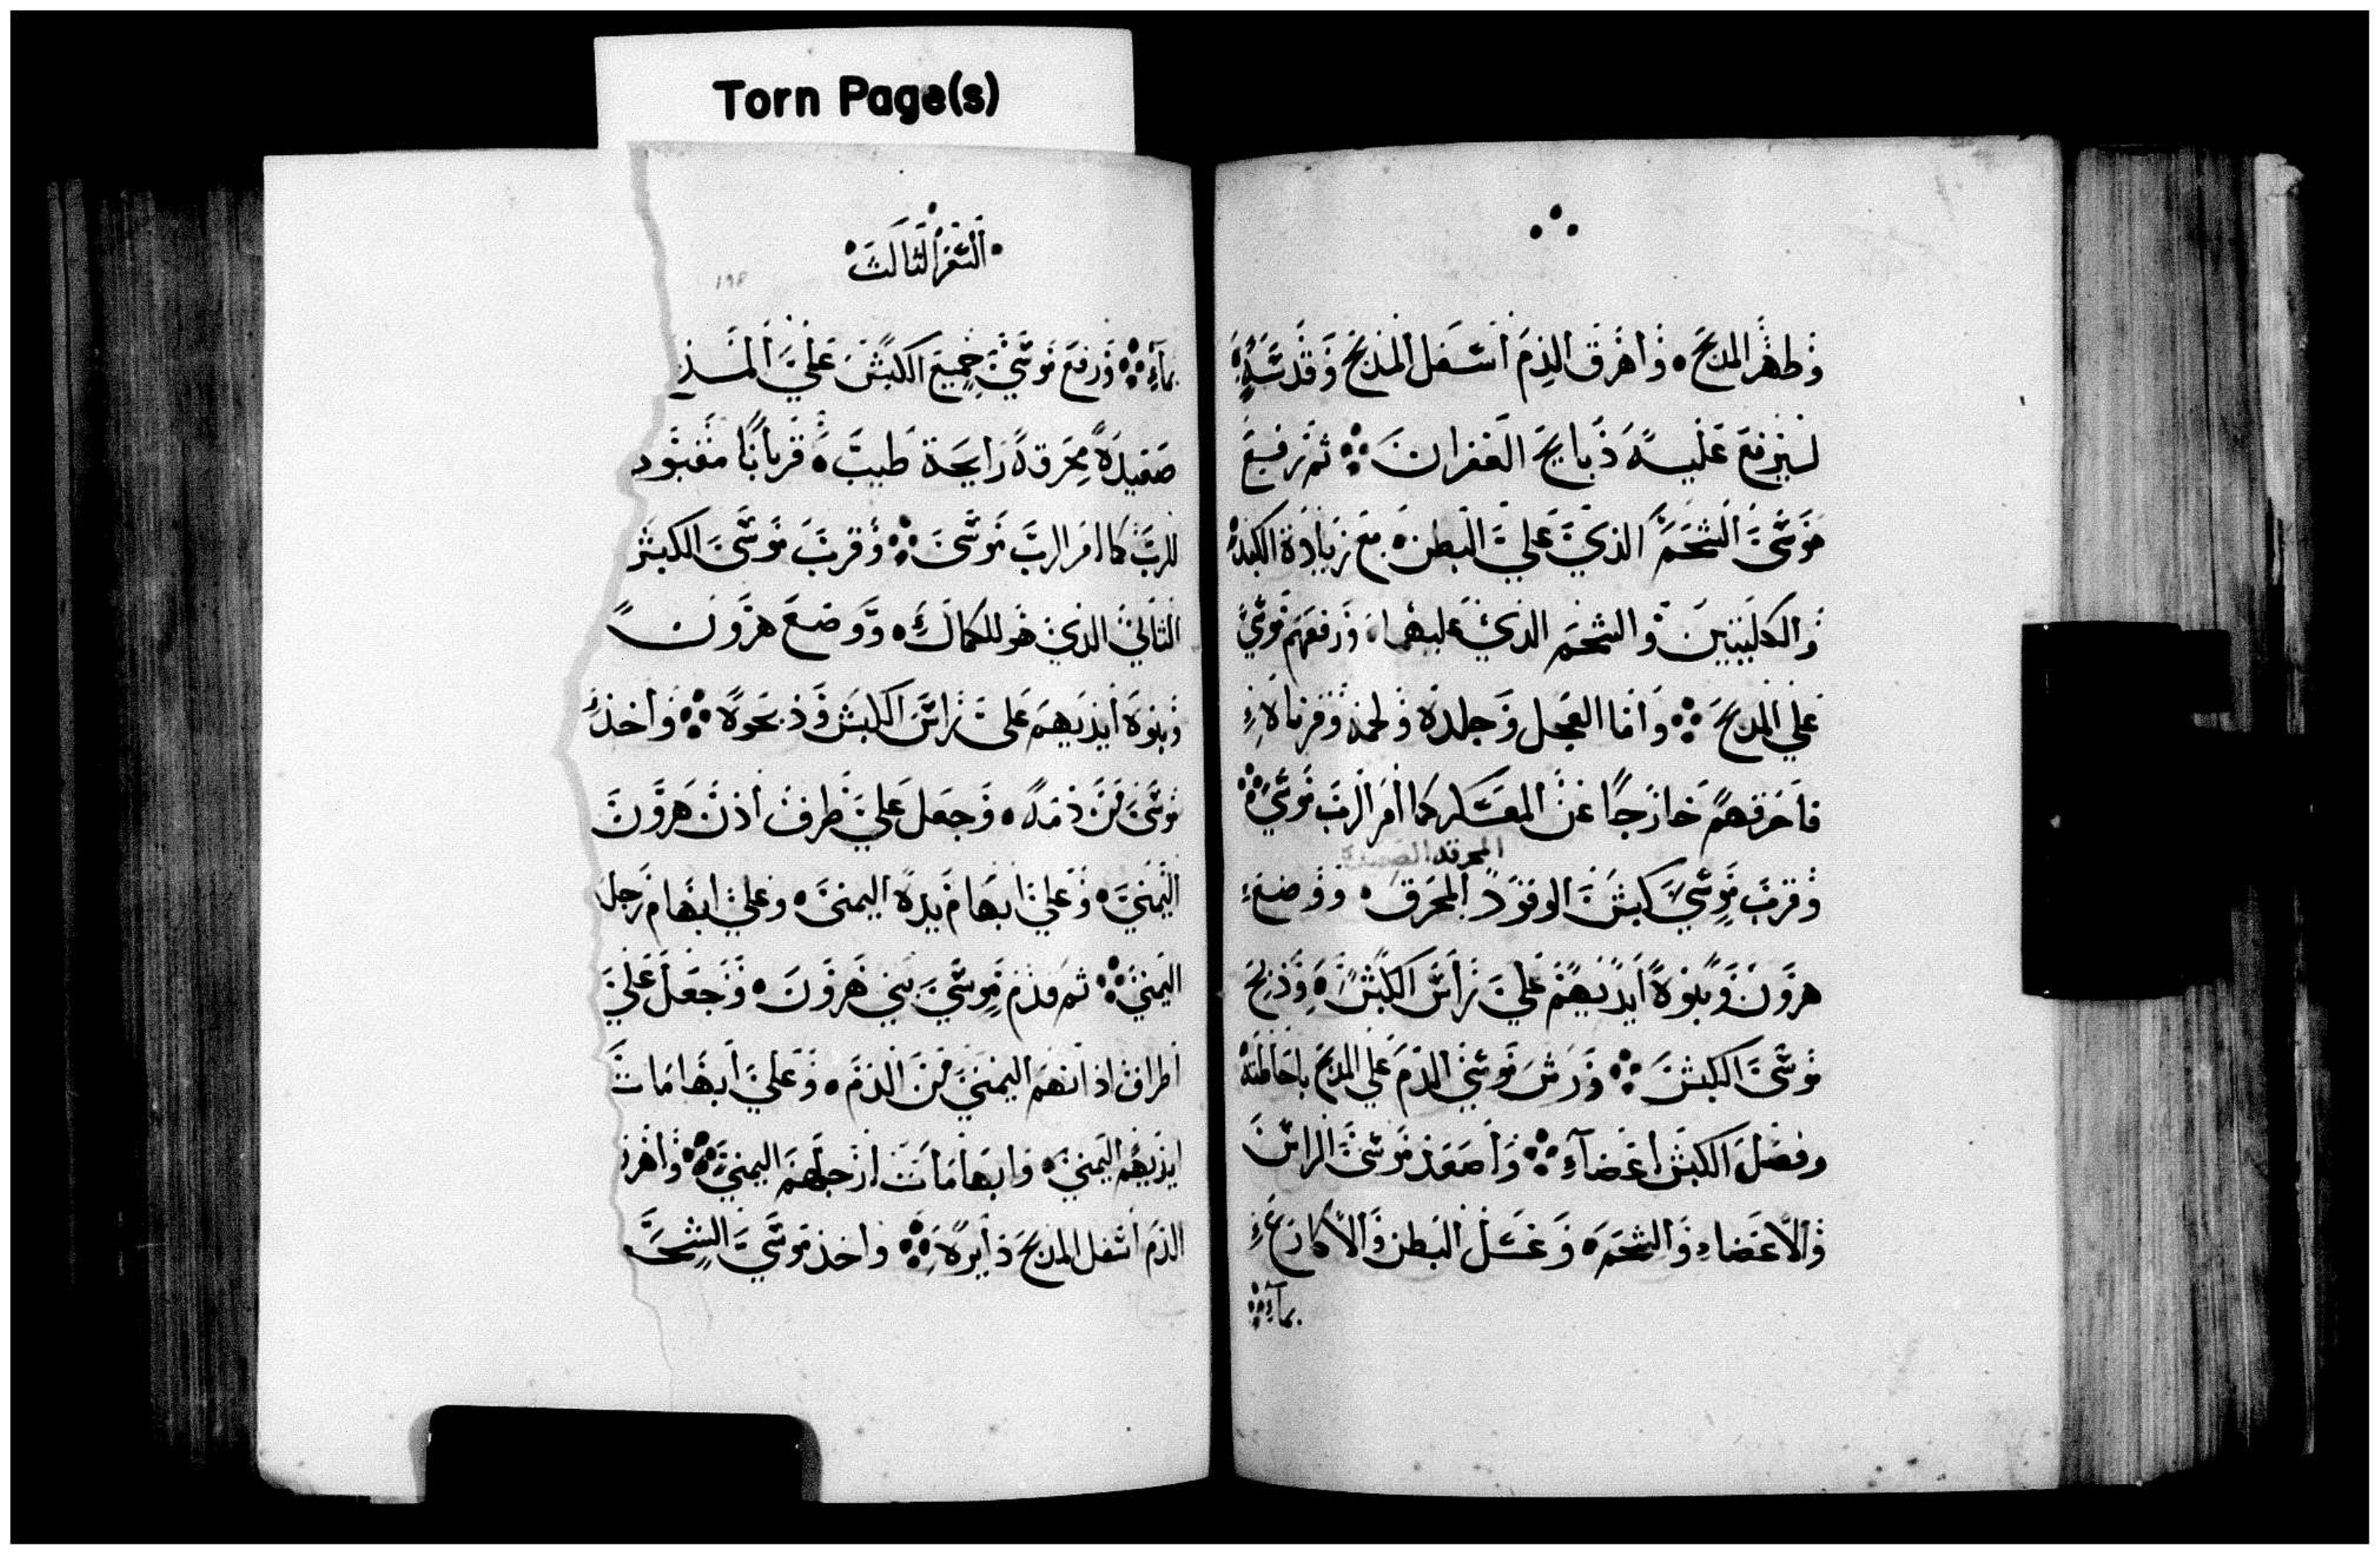 Torn Page(s)
وطهر المدبح وأهرق الدم أسفل المدبح وقدسه
ليرفع عليه ذبايح الغفران ثم رفع
موسى الشحم الذي على البطن مع زيادة الكبد
والكليتين والشحم الذي عليهما ورفعهم موسى
على المدبح وأما العجل وجلده ولحمه وفرناه
فأحرقهم خارجا عن المعسكر كما أمر الرب موسى
المحرقه الصعيدة
وقرب موسى كبش الوقود المحرق ووضع
هرون وبنوه أيديهم على رأس الكبش وذبح
موسى الكبش ورش موسى الدم على المدبح باحاطته
وفصل الكبش اعضاء وأصعد موسى الرأس
والأعضاء والشحم وغسل البطن والأكارع
بماء
السفر الثالث
١٩٨
بماء ورفع موسى جميع الكبش على المذ
صعيدة محرقة رايحة طيبة قربانا مقبو
للرب كما امر الرب موسى وقرب موسى الكبش
الثاني الذي هو للكمال ووضع هرون
وبنوه أيديهم على رأس الكبش وذبحوه وأخذ
موسى من دمه وجعل على طرف أذن هرون
اليمنى وعلى ابهام يده اليمنى وعلى ابهام رجله
اليمنى ثم قدم موسى بني هرون وجعل على
أطراف اذانهم اليمنى من الدم وعلى أبهامات
ايديهم اليمنى وابهامات أرجلهم اليمنى وأهرق
الدم أسفل المدبح دايره وأخذ موسى الشحم